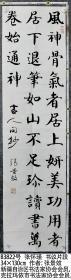 風神骨氣者居上妍美功用者
居下退筆如山不足珍讀書萬
卷始通神 古人
83822号 张怀瓘 书议片段
34×130cm 作者: 张景
新疆自治区书法家协会会员
克拉玛依市书法家协会会员